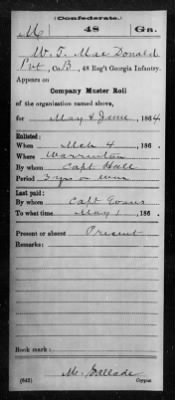 (Confederate.)
M 48 Ga.
W. T. Mac Donald
Pvt, Co. B, 48 Reg't Georgia Infantry.
Appears on
Company Muster Roll
of the organization named above,
for May & June, 1864
Enlisted:
When Mch 4, 186 .
Where Warrenton
By whom Capt Hall
Period 3 yrs or war
Last paid:
By whom Capt Evans
To what time May 1, 186 .
Present or absent Present
Remarks:
Book mark:
(642) Copyist.